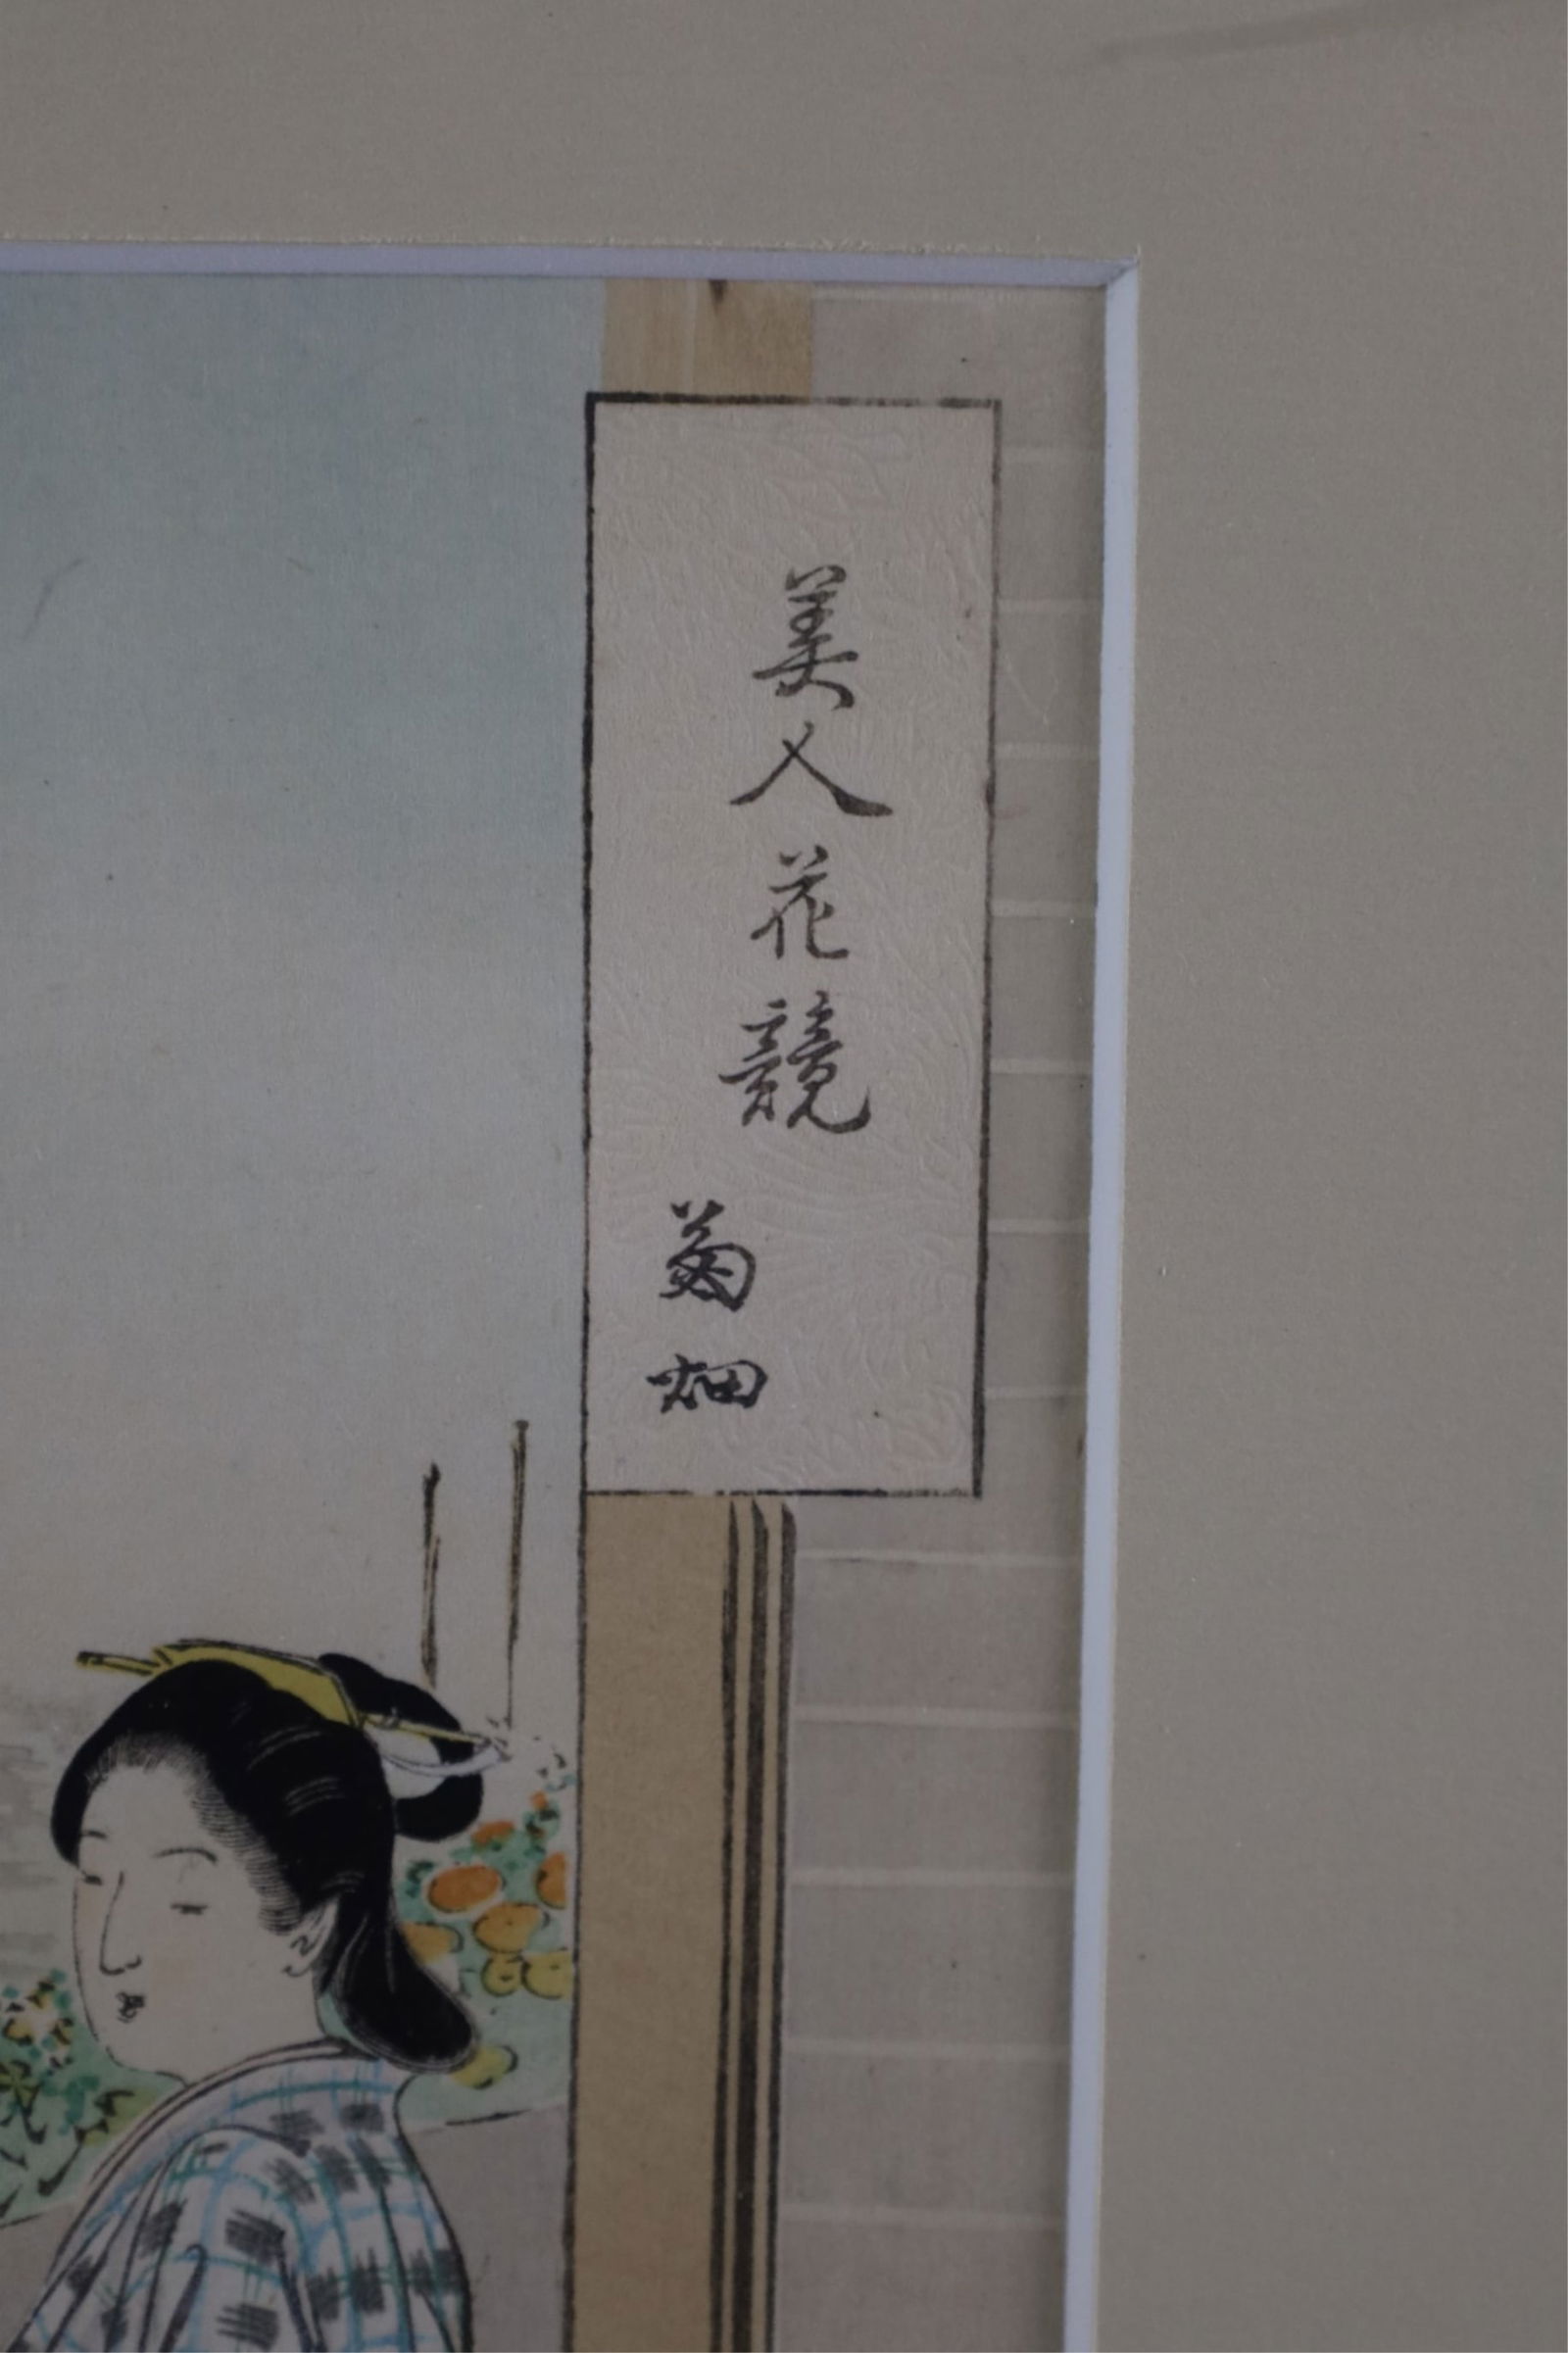 美人花競
菊畑